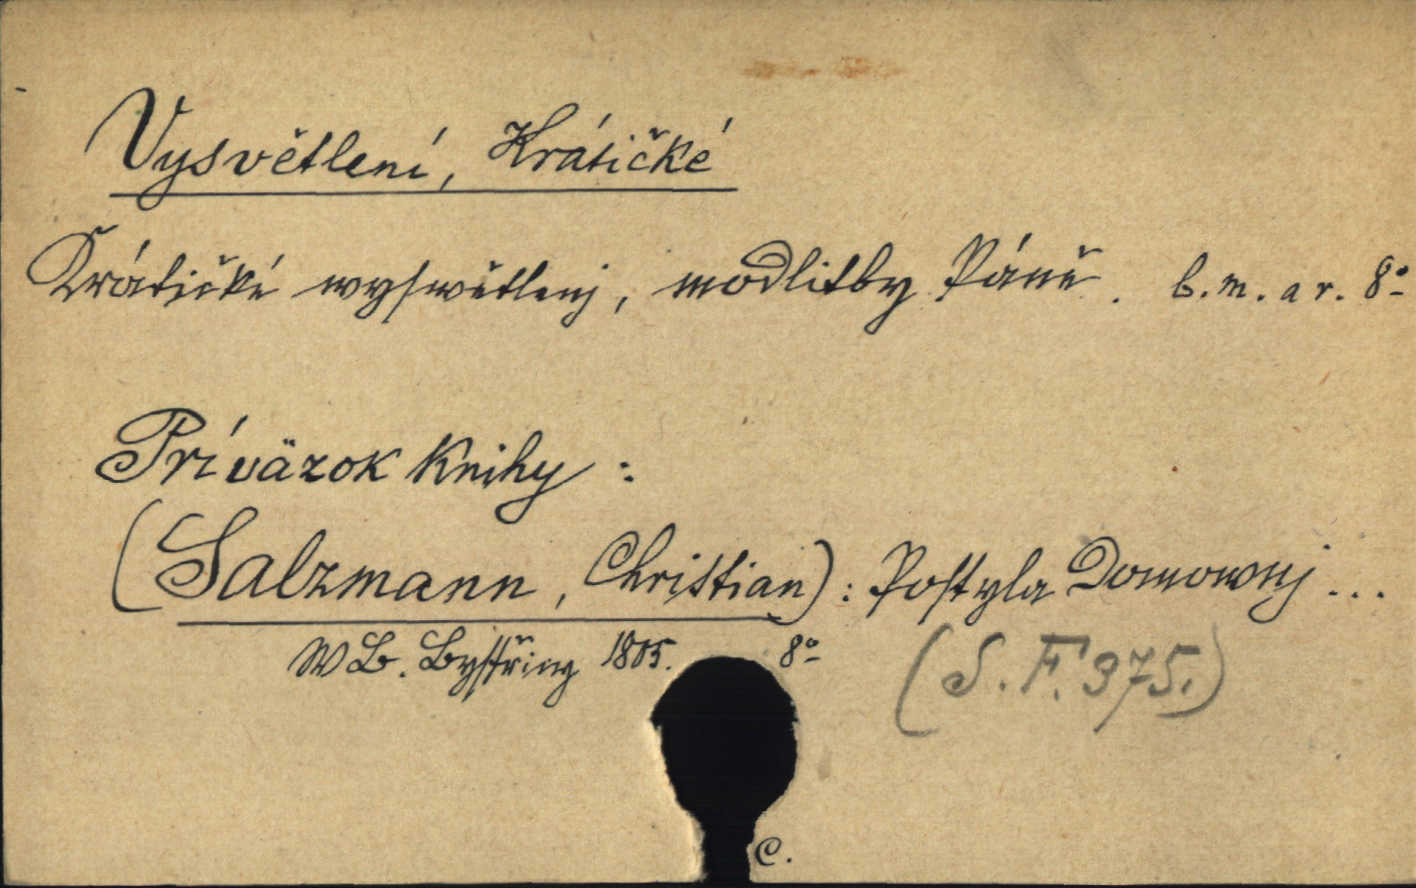 Vysvětlení, Krátičké
Krátičké wyswětlenj, modlitby Páně. b. m. a r. 8°
Príväzok knihy:
(Salzmann, Christian): Postyla Domownj...
W B. Bystřicy 1805. 8°
(S. F. 375.)
C.